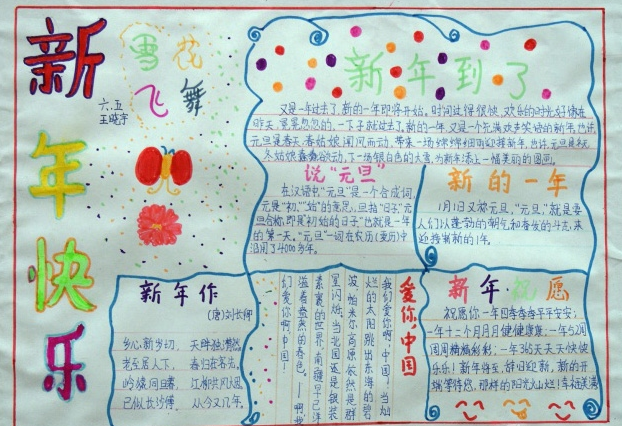 新年快乐
雪花
飞舞
六.五
王晓宇
新年到了
又是一年过去了,新的一年即将开始。时间过得很快,欢乐的时光好像在
昨天,匆匆忽忽的,一下子就过去了,新的一年,又是一个充满欢声笑语的新年。也许,
元旦是春天,春姑娘闻风而动,带来一场绵绵细雨迎接新年,也许,元旦是冬天,
冬姑娘蠢蠢欲动,下一场银白色的大雪,为新年添上一幅美丽的图画。
说“元旦”
在汉语中“元旦”是一个合成词,
元是“初”“始”的意思,旦指“日子”,元
旦合称,即是“初始的日子”也就是一年
的第一天。“元旦”一词在农历(夏历)中
沿用了4000多年。
新的一年
1月1日又称元旦,“元旦,”就是要
人们以蓬勃的朝气和奋发的斗志,来
迎接崭新的1年。
新年作
(唐)刘长卿
乡心新岁切,天畔独潸然。
老至居人下,春归在客先。
岭猿同旦暮,江柳共风烟。
已似长沙傅,从今又几年。
爱你,中国
我们爱你啊,中国!当灿
烂的太阳跳出东海的碧
波,帕米尔高原依然是群
星闪烁;当北国还是银装
素裹的世界,南疆早已洋
溢着盎然的春色。——啊,我
们爱你啊,中国!
新年祝愿
祝愿你一年四季季季平平安安;
一年十二个月月月健健康康;一年52周
周周精精彩彩;一年365天天天快快
乐乐!新年将至,辞旧迎新,新的开
端等待您,那样的阳光火山烂!幸福美满